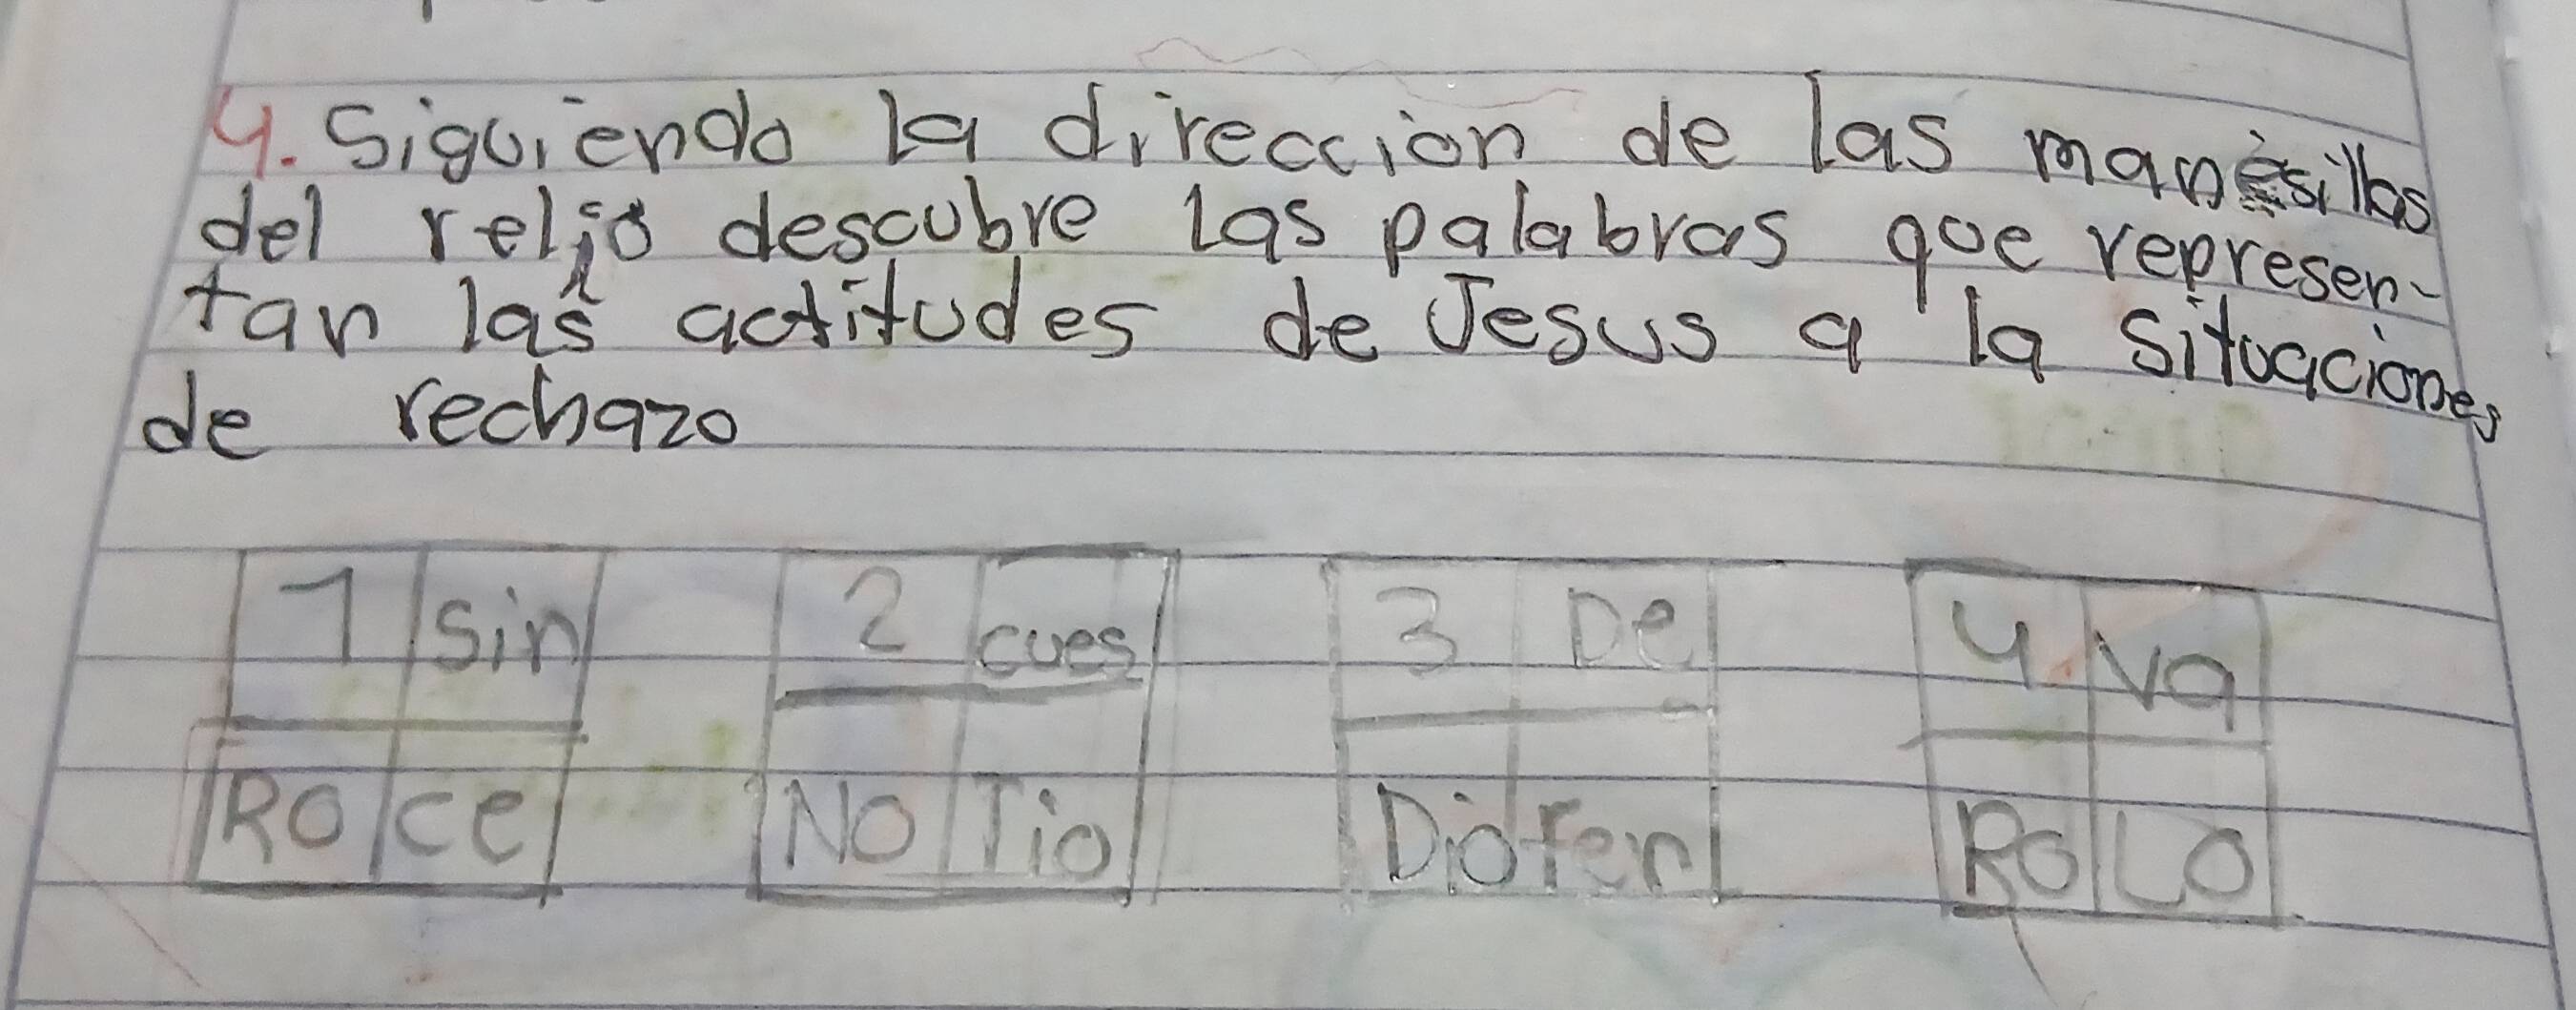 4. Siguiendo la direccion de las manesillas
del reljo descubre las palabras que represen-
tan las actitudes de Jesus a la situaciones
de rechazo
1 sin 2 cues 3 De 4 va
RO ce NO Tio Dio fen Ro LO